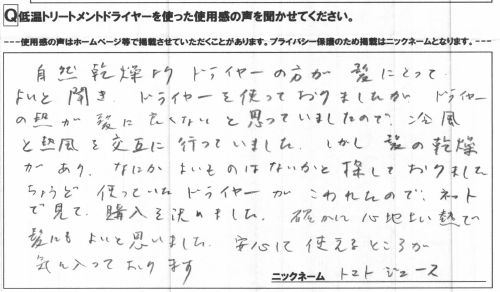 Q低温トリートメントドライヤーを使った使用感の声を聞かせてください。
---使用感の声はホームページ等で掲載させていただくことがあります。プライバシー保護のため掲載はニックネームとなります。---
自然乾燥より ドライヤーの方が 髪にとって
よいと聞き、ドライヤーを使っておりましたが ドライヤー
の熱が 髪に良くないと思っていましたので、冷風
と熱風を交互に行っていました。しかし 髪の乾燥
があり、なにか よいものはないかと探しておりました
ちょうど 使っていた ドライヤーが こわれたので、ネット
で見て、購入を決めました。確かに 心地よい熱で
髪にも よいと思いました。安心して 使えるところが
気に入っております
ニックネーム トマトジュース